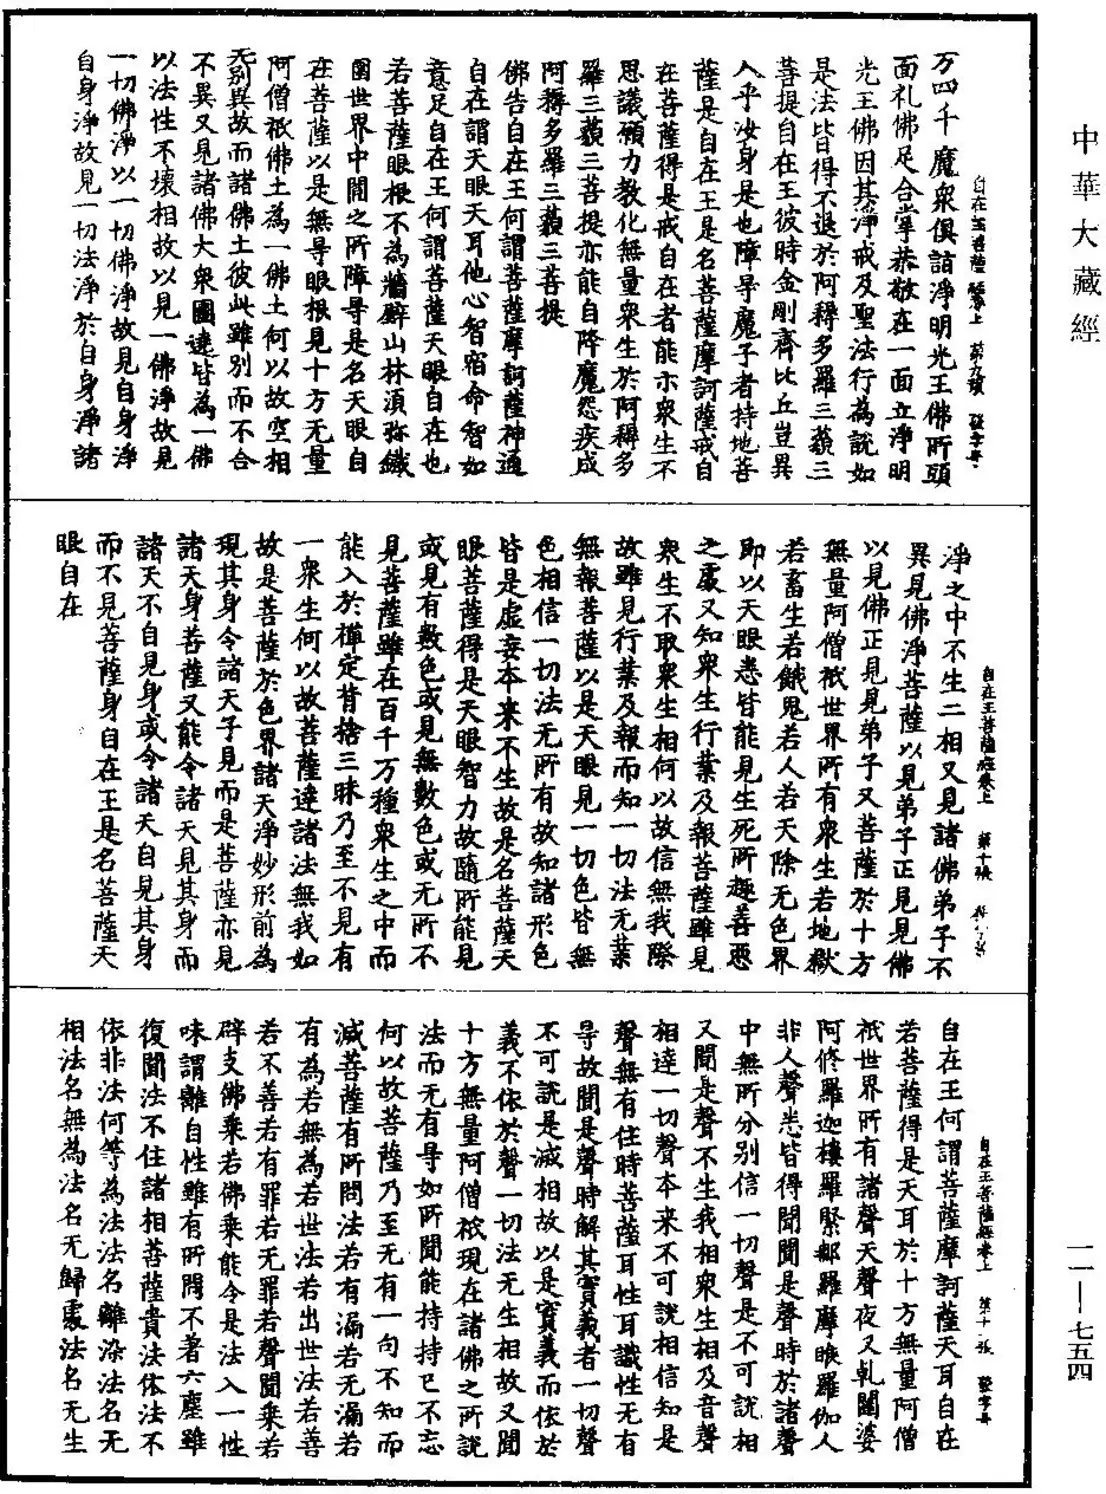 中華大藏經
万四千魔衆俱詣淨明光王佛所頭
面礼佛足合掌恭敬在一面立淨明
光王佛因其淨戒及聖法行為說如
是法皆得不退於阿耨多羅三藐三
菩提自在王彼時金剛齊比丘豈異
人乎汝身是也障㝵魔子者持地菩
薩是自在王是名菩薩摩訶薩戒自
在菩薩得是戒自在者能示衆生不
思議願力教化無量衆生於阿耨多
羅三藐三菩提亦能自降魔怨疾成
阿耨多羅三藐三菩提
佛告自在王何謂菩薩摩訶薩神通
自在謂天眼天耳他心智宿命智如
意足自在王何謂菩薩天眼自在也
若菩薩眼根不為牆壁山林湏弥鐵
圍世界中闇之所障㝵是名天眼自
在菩薩以是無㝵眼根見十方无量
阿僧祇佛土為一佛土何以故空相
无别異故而諸佛土彼此雖别而不合
不異又見諸佛大衆圍遶皆為一佛
以法性不壞相故以見一佛淨故見
一切佛淨以一切佛淨故見自身淨
自身淨故見一切法淨於自身淨諸
自在王菩薩經卷上 第九張
淨之中不生二相又見諸佛弟子不
異見佛淨菩薩以見弟子正見見佛
以見佛正見見弟子又菩薩於十方
無量阿僧祇世界所有衆生若地獄
若畜生若餓鬼若人若天除无色界
即以天眼悉皆能見生死所趣善惡
之處又知衆生行業及報菩薩雖見
衆生不取衆生相何以故信無我際
故雖見行業及報而知一切法无業
無報菩薩以是天眼見一切色皆無
色相信一切法无所有故知諸形色
皆是虛妄本来不生故是名菩薩天
眼菩薩得是天眼智力故隨所能見
或見有數色或見無數色或无所不
見菩薩雖在百千万種衆生之中而
能入於禪定背捨三昧乃至不見有
一衆生何以故菩薩達諸法無我如
故是菩薩於色界諸天淨妙形前為
現其身令諸天子見而是菩薩亦見
諸天身菩薩又能令諸天見其身而
諸天不自見身或令諸天自見其身
而不見菩薩身自在王是名菩薩天
眼自在
自在王菩薩經卷上 第十張
自在王何謂菩薩摩訶薩天耳自在
若菩薩得是天耳於十方無量阿僧
祇世界所有諸聲天聲夜叉乹闥婆
阿修羅迦樓羅緊那羅摩睺羅伽人
非人聲悉皆得聞聞是聲時於諸聲
中無所分别信一切聲是不可說相
又聞是聲不生我相衆生相及音聲
相達一切聲本来不可說相信知是
聲無有住時菩薩耳性耳識性无有
㝵故聞是聲時解其實義者一切聲
不可說是滅相故以是實義而依於
義不依於聲一切法无生相故又聞
十方無量阿僧祇現在諸佛之所說
法而无有㝵如所聞能持持已不忘
何以故菩薩乃至无有一句不知而
減菩薩有所問法若有漏若无漏若
有為若無為若世法若出世法若善
若不善若有罪若无罪若聲聞乘若
辟支佛乘若佛乘能令是法入一性
味謂離自性雖有所聞不著六塵雖
復聞法不住諸相菩薩貴法体法不
依非法何等為法法名離染法名无
相法名無為法名无歸處法名无生
自在王菩薩經卷上 第十一張
一一—七五四